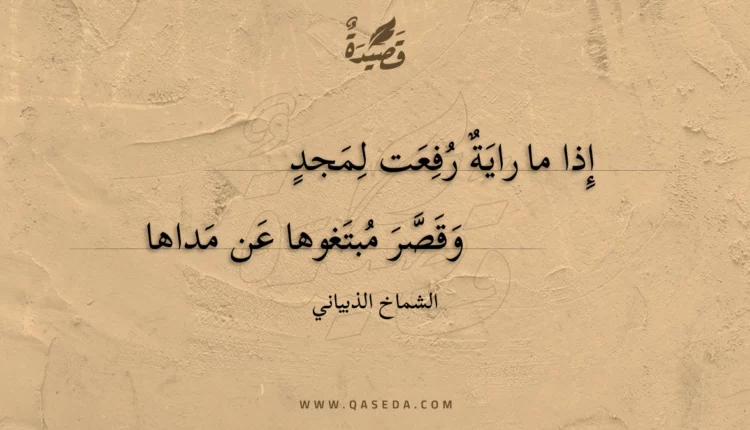 قَصِيدَةٌ
إِذا ما رايَةٌ رُفِعَت لِمَجدٍ
وَقَصَّرَ مُبتَغوها عَن مَداها
الشماخ الذبياني
WWW.QASEDA.COM